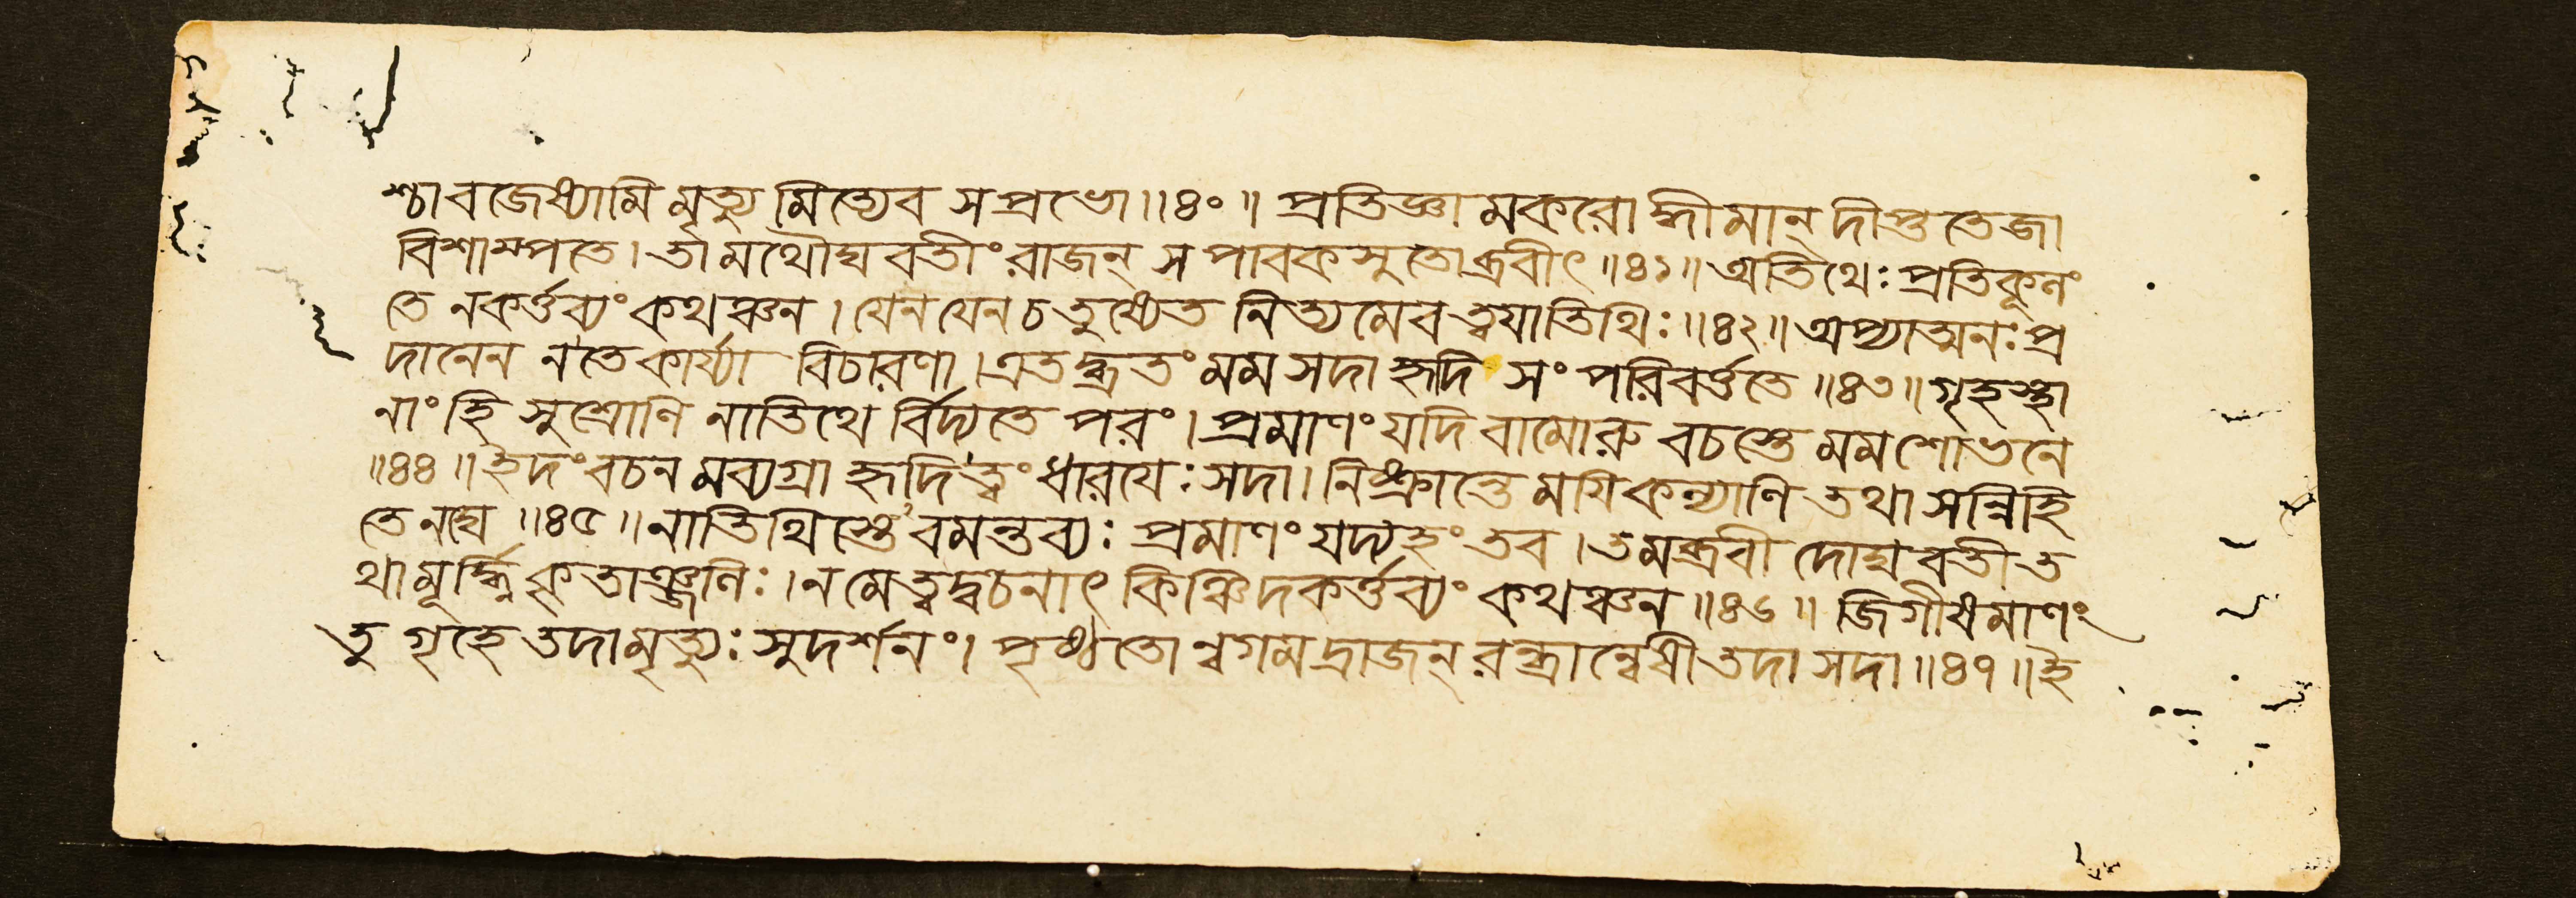 শ্চাবজেষ্যামি মৃত্যুমিত্যেব স প্রভো॥৪০॥ প্রতিজ্ঞামকরোদ্ধীমান্ দীপ্ততেজা
বিশাম্পতে। তামথৌঘবতীং রাজন্ স পাবকসুতোব্রবীৎ॥৪১॥ অতিথেঃ প্রতিকূলং
তে ন কর্ত্তব্যং কথঞ্চন। যেন যেন চ তুষ্যেত নিত্যমেব ত্বযাতিথিঃ॥৪২॥ অপ্যাত্মনঃ প্র
দানেন ন তে কার্য্যা বিচারণা। এতদ্ব্রতং মম সদা হৃদি সংপরিবর্ত্ততে॥৪৩॥ গৃহস্থা
নাং হি সুশ্রোণি নাতিথের্বিদ্যতে পরং। প্রমাণং যদি বামোরু বচস্তে মম শোভনে
॥৪৪॥ ইদং বচনমব্যগ্রা হৃদি ত্বং ধারযেঃ সদা। নিষ্ক্রান্তে মযি কল্যাণি তথা সন্নিহি
তেনঘে॥৪৫॥ নাতিথিস্তেবমন্তব্যঃ প্রমাণং যদ্যহং তব। তমব্রবীদোঘবতী ত
থা মূর্দ্ধ্নি কৃতাঞ্জলিঃ। ন মে ত্বদ্বচনাৎ কিঞ্চিদকর্ত্তব্যং কথঞ্চন॥৪৬॥ জিগীষমাণং
তু গৃহে তদা মৃত্যুঃ সুদর্শনং। পৃষ্ঠতোন্বগমদ্রাজন্ রন্ধ্রান্বেষী তদা সদা॥৪৭॥ ই